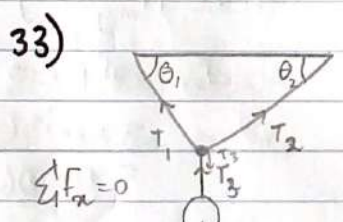 33)
θ₁ θ₂
T₁ T₂
T₃
T₃
ΣFₓ=0